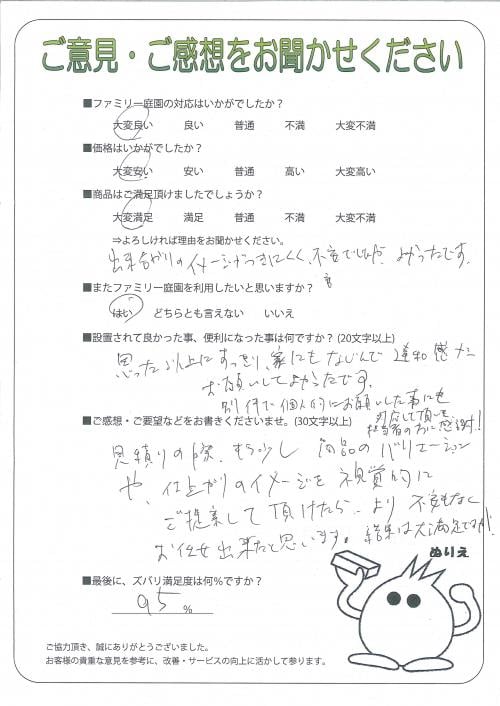 ご意見・ご感想をお聞かせください
■ファミリー庭園の対応はいかがでしたか？
大変良い 良い 普通 不満 大変不満
■価格はいかがでしたか？
大変安い 安い 普通 高い 大変高い
■商品はご満足頂けましたでしょうか？
大変満足 満足 普通 不満 大変不満
⇒よろしければ理由をお聞かせください。
出来上がりのイメージがつきにくく、不安でしたが、よかったです。
■またファミリー庭園を利用したいと思いますか？
はい どちらとも言えない いいえ
■設置されて良かった事、便利になった事は何ですか？(20文字以上)
思った以上にすっきり、家にもなじんで違和感ナシ
お願いしてよかったです。
別件で個人的にお願いした事にも
対応して頂いた
担当者の方に感謝！
■ご感想・ご要望などをお書きくださいませ。(30文字以上)
見積りの際、もう少し商品のバリエーション
や、仕上がりのイメージを視覚的に
ご提案して頂けたら、より不安もなく
お任せ出来たと思います。結果は大満足ですが！
ぬりえ
■最後に、ズバリ満足度は何％ですか？
95％
ご協力頂き、誠にありがとうございました。
お客様の貴重な意見を参考に、改善・サービスの向上に活かして参ります。